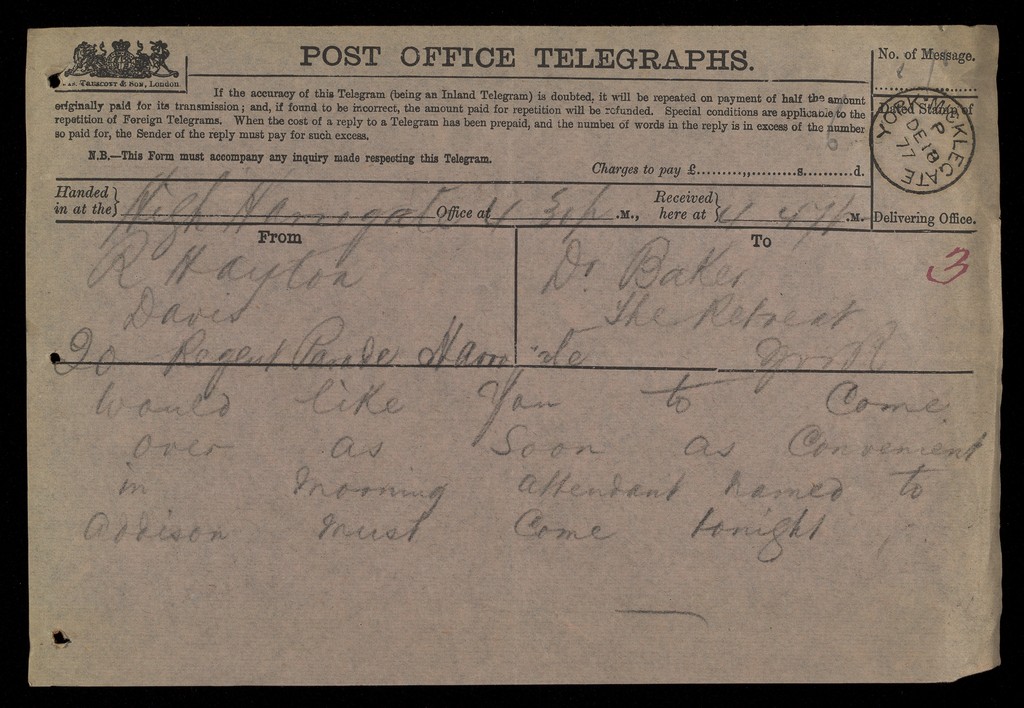 POST OFFICE TELEGRAPHS.
No. of Message.
& Son, London
If the accuracy of this Telegram (being an Inland Telegram) is doubted, it will be repeated on payment of half the amount
originally paid for its transmission; and, if found to be incorrect, the amount paid for repetition will be refunded. Special conditions are applicable to the
repetition of Foreign Telegrams. When the cost of a reply to a Telegram has been prepaid, and the number of words in the reply is in excess of the number
so paid for, the Sender of the reply must pay for such excess.
N.B.—This Form must accompany any inquiry made respecting this Telegram.
Charges to pay £.........,,.........s..........d.
Dated Stamp of
YORK MICKLEGATE
P
DE 18
77
Delivering Office.
Handed in at the } High Harrogate Office at 4 30p .M., Received here at } 4 47p .M.
From
To
3
R Hayton
Davis
20 Regent Parade
Dr Baker
The Retreat
York
Would like you to come
over as soon as convenient
in morning attendant named to
Addison must come tonight